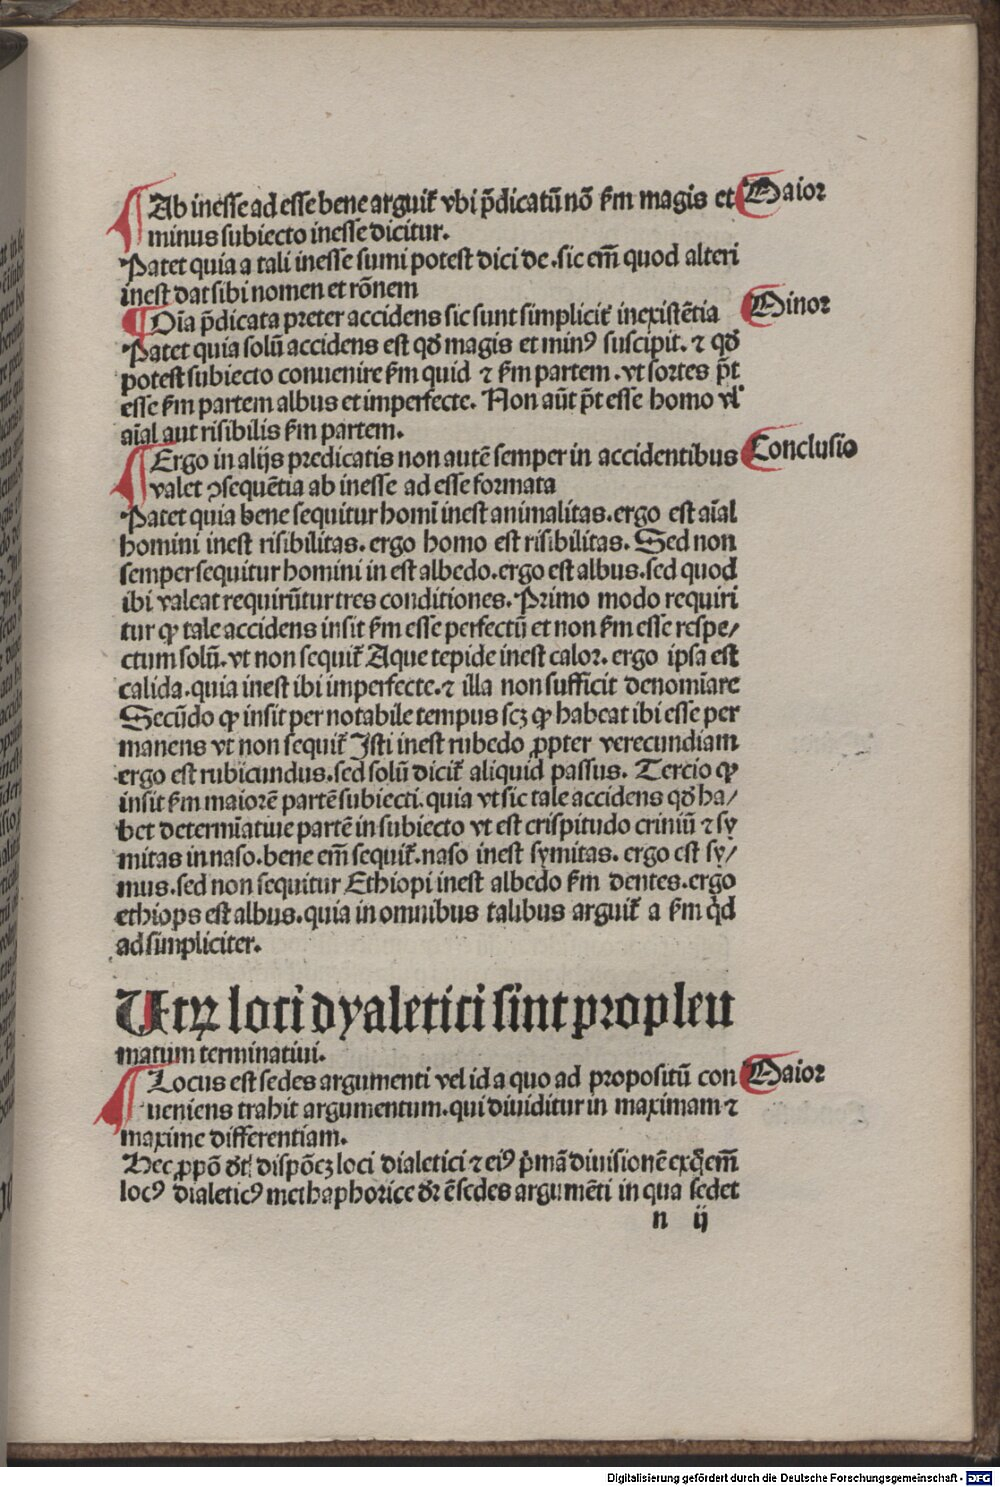 Ab inesse ad esse bene arguit᷑ vbi p̄dicatū nō s̄m magis et Maior
minus subiecto inesse dicitur.
Patet quia a tali inesse sumi potest dici de .sic em̄ quod alteri
inest dat sibi nomen et rōnem
Oīa p̄dicata preter accidens sic sunt simplicit᷑ inexistētia Minor
Patet quia solū accidens est qđ magis et minꝰ suscipit. ⁊ qđ
potest subiecto conuenire s̄m quid ⁊ s̄m partem .vt sortes p̄t
esse s̄m partem albus et imperfecte. Non aūt p̄t esse homo vl᷑
aīal aut risibilis s̄m partem.
Ergo in alijs predicatis non autē semper in accidentibus Conclusio
valet ꝯsequētia ab inesse ad esse formata
Patet quia bene sequitur homī inest animalitas. ergo est aīal
homini inest risibilitas. ergo homo est risibilitas. Sed non
semper sequitur homini in est albedo. ergo est albus. sed quod
ibi valeat requirūtur tres conditiones. Primo modo requiri
tur ꝙ tale accidens insit s̄m esse perfectū et non s̄m esse respe/
ctum solū. vt non sequit᷑ Aque tepide inest calor. ergo ipsa est
calida. quia inest ibi imperfecte. ⁊ illa non sufficit denomīare
Secūdo ꝙ insit per notabile tempus scꝫ ꝙ habeat ibi esse per
manens vt non sequit᷑ Isti inest rubedo ꝓpter verecundiam
ergo est rubicundus. sed solū dicit᷑ aliquid passus. Tercio ꝙ
insit s̄m maiorē partē subiecti. quia vt sic tale accidens qđ ha/
bet determīatiue partē in subiecto vt est crispitudo criniū ⁊ sy
mitas in naso. bene em̄ sequit᷑. naso inest symitas. ergo est sy/
mus. sed non sequitur Ethiopi inest albedo s̄m dentes. ergo
ethiops est albus. quia in omnibus talibus arguit᷑ a s̄m qͥd
ad simpliciter.
Utꝝ loci dyaletici sint propleu
matum terminatiui.
Locus est sedes argumenti vel id a quo ad propositū con Maior
ueniens trahit argumentum. qui diuiditur in maximam ⁊
maxime differentiam.
Hec ꝓpō dt᷑ dispōeꝫ loci dialetici ⁊ eiꝰ pͥmā diuisionē exqͥ em̄
locꝰ dialeticꝰ methaphorice dr̄ ē sedes argumēti in qua sedet
n ij
Digitalisierung gefördert durch die Deutsche Forschungsgemeinschaft - DFG